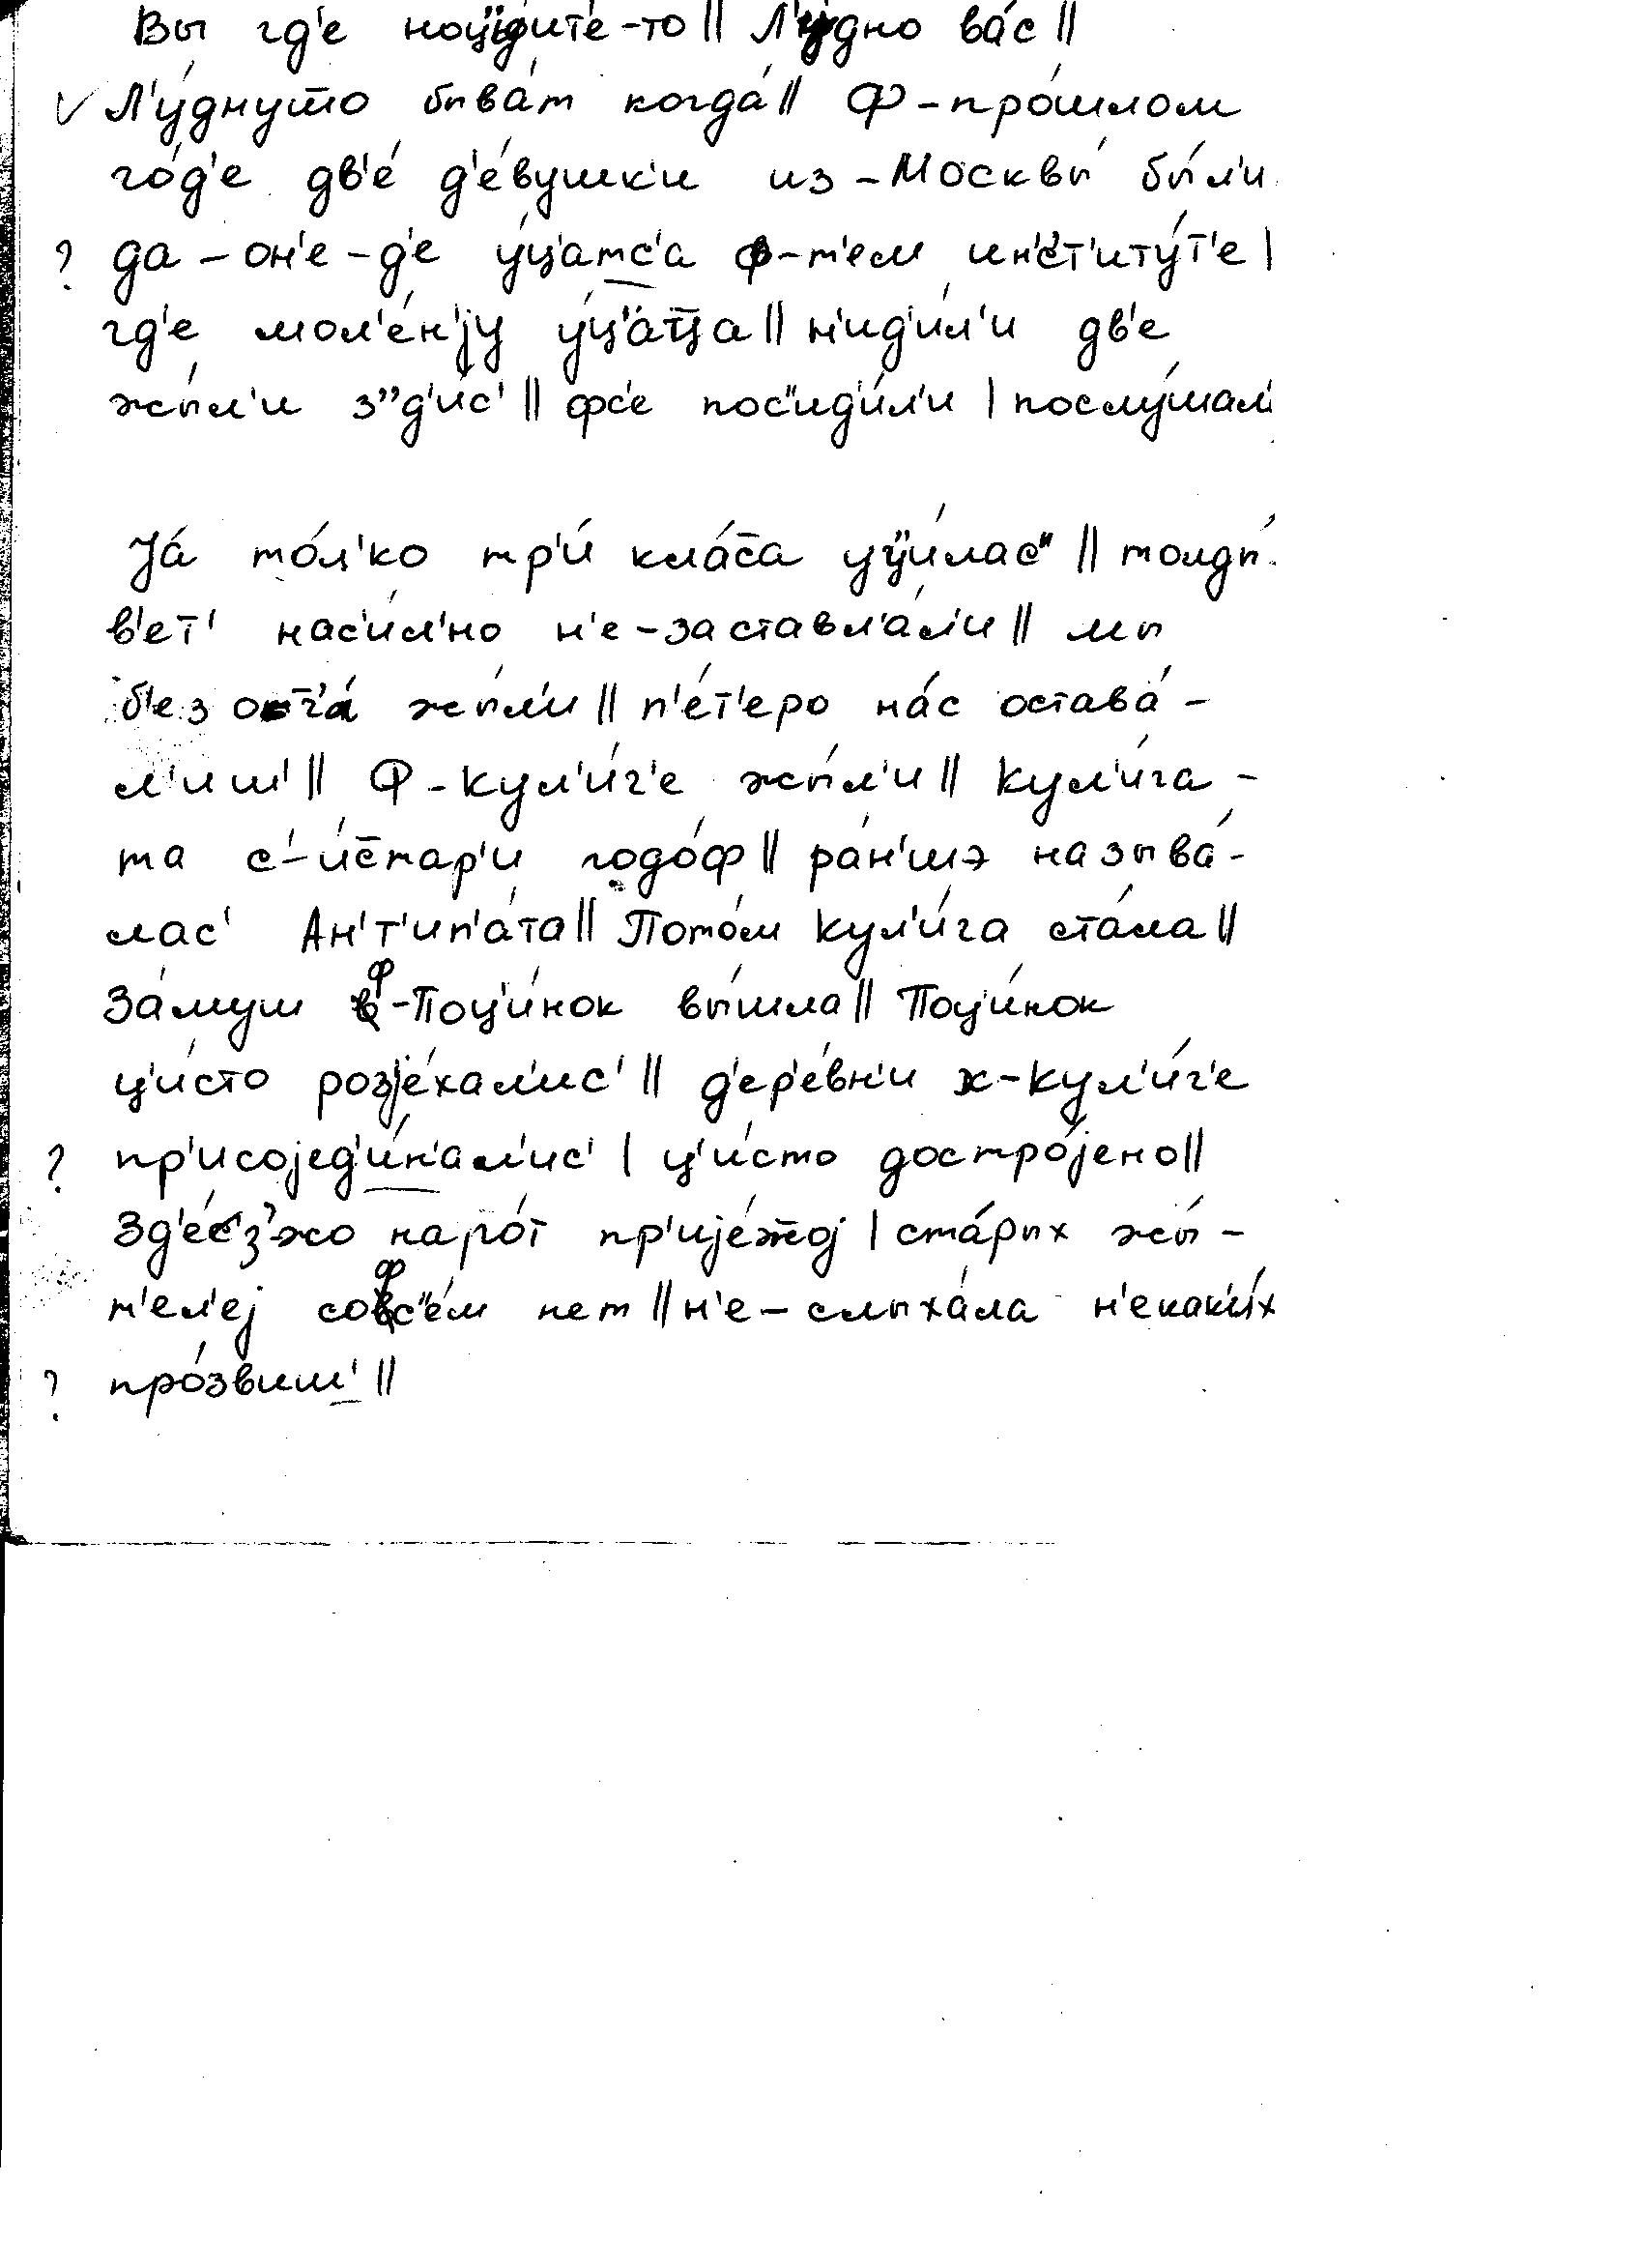 Вы гд'е ноц"у́д'ит'е-то || Л'у́дно ва́с ||
√ Л'у́дну т̅о быва́т когда́ || Ф-про́шлом
го́д'е дв'е́ д'е́вушк'и из-Москвы́ бы́л'и
? да-он'е-д'е у́ц'атс'а ф-т'ем ин'с'т'иту́т'е |
гд'е мол'е́н'jу у́ц'а̄т̅ца || н'ид'и́л'и дв'е
жы́л'и з"д'и́с' || фс'е пос"ид'и́л'и | послу́шал'
Jа́ то́л'ко тр'и́ кла́с̅а уц"и́лас" || толды́
в'ет' нас'и́л'но н'е-заставл'а́л'и || мы
б'ез от̅ца́ жы́л'и || п'е́т'еро на́с остава́-
л'иш' || Ф-кул'и́г'е жы́л'и || Кул'и́га-
та с'-и́с̅тар'и годо́ф || ра́н'шэ называ́-
лас' Ан'т'ип'а́та || Пото́м Кул'и́га ста́ла ||
За́муш ф-Поц'и́нок вы́шла || Поц'и́нок
ц'и́сто розjе́хал'ис' || д'ер'е́вн'и х-кул'и́г'е
? пр'исоjед'и́н'ал'ис' | ц'и́сто достро́jено ||
Зд'е́з'жо наро́т пр'иjе́ж̅оj | ста́рых жы́-
т'ел'еj софс"е́м нет || н'е-слыха́ла н'екак'и́х
? про́звиш' ||